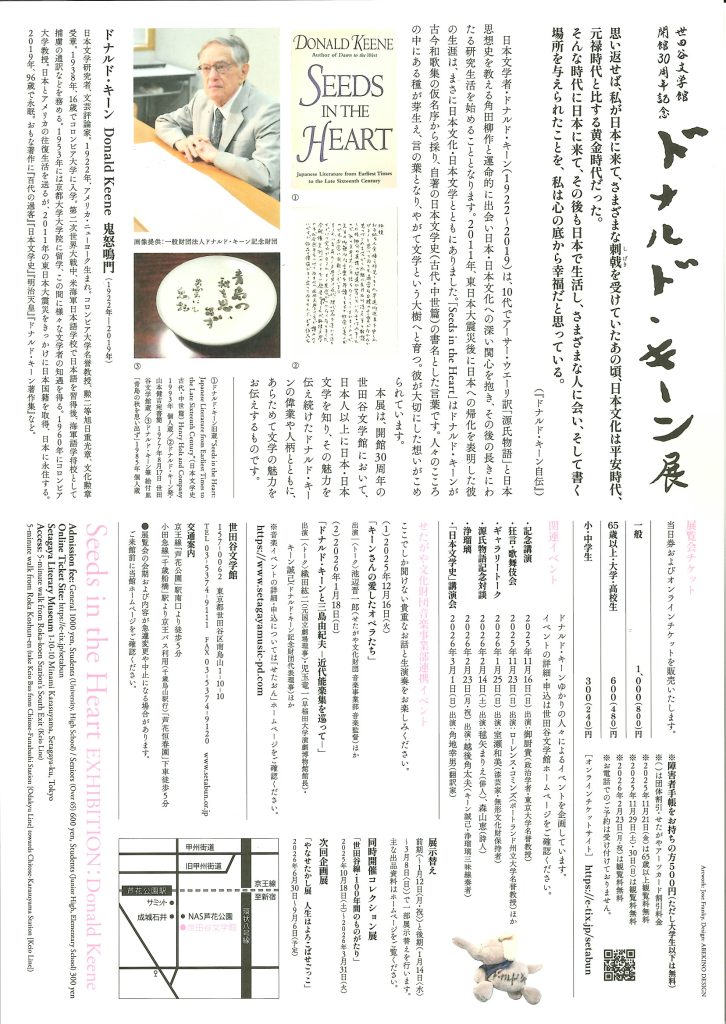 世田谷文学館
開館30周年記念
ドナルド・キーン展
思い返せば、私が日本に来て、さまざまな刺戟を受けていたあの頃、日本文化は平安時代、
しげき
元禄時代と比する黄金時代だった。
そんな時代に日本に来て、その後も日本で生活し、さまざまな人に会い、そして書く
場所を与えられたことを、私は心の底から幸福だと思っている。
（『ドナルド・キーン自伝』）
日本文学者・ドナルド・キーン（1922〜2019）は、10代でアーサー・ウェーリ訳『源氏物語』と日本
思想史を教える角田柳作と運命的に出会い日本・日本文化への深い関心を抱き、その後の長きにわ
たる研究生活を始めることとなります。2011年、東日本大震災後に日本への帰化を表明した彼
の生涯は、まさに日本文化・日本文学とともにありました。「Seeds in the Heart」はドナルド・キーンが
古今和歌集の仮名序から採り、自著の日本文学史（古代・中世篇）の書名とした言葉です。人々のこころ
の中にある種が芽生え、言の葉となり、やがて文学という大樹へと育つ。彼が大切にした想いがこめ
られています。
本展は、開館30周年の
世田谷文学館において、
日本人以上に日本・日本
文学を知り、その魅力を
伝え続けたドナルド・キー
ンの偉業や人柄とともに、
あらためて文学の魅力を
お伝えするものです。
DONALD KEENE
Author of Dawn to the West
SEEDS
IN THE
HEART
Japanese Literature from Earliest Times
to the Late Sixteenth Century
①
②
画像提供：一般財団法人ドナルド・キーン記念財団
③
①ドナルド・キーン自著 "Seeds in the Heart:
Japanese Literature from Earliest Times to
the Late Sixteenth Century"（『日本文学史
古代・中世篇』）Henry Holt and Company
1993年 個人蔵
山本健吉宛書簡 1977年8月17日 世田
谷文学館蔵／③ドナルド・キーン筆 絵付皿
「青島の秋を思い出ず」1985年 個人蔵
ドナルド・キーン Donald Keene 鬼怒鳴門（1922年―2019年）
日本文学研究者、文芸評論家。1922年、アメリカ・ニューヨーク生まれ。コロンビア大学名誉教授。勲二等旭日重光章、文化勲章
受章。1938年、16歳でコロンビア大学に入学。第二次世界大戦中、米海軍日本語学校で日本語を習得後、海軍語学将校として
捕虜の通訳などを務める。1953年には京都大学大学院に留学、この間に様々な文学者の知遇を得る。1960年にコロンビア
大学教授。日本とアメリカの往復生活を送るが、2011年の東日本大震災をきっかけに日本国籍を取得、日本に永住する。
2019年、96歳で永眠。おもな著作に『百代の過客』『日本文学史』『明治天皇』『ドナルド・キーン著作集』など。
展覧会チケット
当日券およびオンラインチケットを販売いたします。
一般 1,000（800）円
65歳以上・大学・高校生 600（480）円
小・中学生 300（240）円
※障害者手帳をお持ちの方500円（ただし大学生以下は無料）
※（）は団体割引・せたがやアーツカード割引料金
※2025年11月21日（金）は65歳以上観覧料無料
※2025年11月29日（土）・30日（日）は観覧料無料
※2026年2月23日（月・祝）は観覧料無料
※お電話でのご予約は受け付けておりません。
［オンラインチケットサイト］ https://e-tix.jp/setabun
関連イベント
ドナルド・キーンゆかりの人々によるイベントを企画しています。
イベントの詳細・申込は世田谷文学館ホームページをご確認ください。
・記念講演 2025年11月16日（日）出演：御厨貴（政治学者・東京大学名誉教授）
・狂言・歌舞伎会 2025年11月23日（日）出演：ローレンス・コミンズ（ポートランド州立大学名誉教授）ほか
・ギャラリートーク 2026年1月25日（日）出演：室瀬和美（漆芸家・無形文化財保持者）
・源氏物語記念対談 2026年2月14日（土）出演：毬矢まりえ（俳人）、森山恵（詩人）
・浄瑠璃 2026年2月23日（月・祝）出演：越後角太夫（キーン誠己・浄瑠璃三味線奏者）
・「日本文学史」講演会 2026年3月1日（日）出演：角地幸男（翻訳家）
せたがや文化財団音楽事業部連携イベント
ここでしか聞けない貴重なお話と生演奏をお楽しみください。
（1）2025年12月16日（火）
「キーンさんの愛したオペラたち」
出演：（トーク）池辺晋一郎（せたがや文化財団 音楽事業部 音楽監督）ほか
（2）2026年1月18日（日）
「ドナルド・キーンと三島由紀夫―近代能楽集を巡って―」
出演：（トーク）織田紘二（元国立劇場理事）・児玉竜一（早稲田大学演劇博物館館長）・
キーン誠己（ドナルド・キーン記念財団代表理事）ほか
※音楽イベントの詳細・申込については「せたおん」ホームページをご確認ください。
https://www.setagayamusic-pd.com
展示替え
前期（〜1月12日（月・祝）と後期（1月14日（水）
〜3月8日（日）で一部展示替えを行います。
主な出品資料はホームページをご覧ください。
同時開催コレクション展
「世田谷線・100年間のものがたり」
2025年10月18日（土）〜2026年3月31日（火）
次回企画展
「やなせたかし展 人生はよろこばせごっこ」
2026年6月30日〜9月6日（予定）
世田谷文学館
157-0062 東京都世田谷区南烏山1-10-10
TEL 03-5374-9111 FAX 03-5374-9120 www.setabun.or.jp
交通案内
京王線「芦花公園」駅南口より徒歩5分
小田急線「千歳船橋」駅より京王バス利用（千歳烏山駅行）「芦花恒春園」下車徒歩5分
●展覧会の会期および内容が急遽変更や中止になる場合があります。
ご来館前に当館ホームページをご確認ください。
Seeds in the Heart EXHIBITION : Donald Keene
Admission Fee: General 1000 yen, Students (University, High School) / Seniors (Over 65) 600 yen, Students (Junior High, Elementary School) 300 yen
Online Ticket Site: https://e-tix.jp/setabun
Setagaya Literary Museum 1-10-10 Minami Karasuyama, Setagaya-ku, Tokyo
Access: 5-minute walk from Roka-koen Station's South Exit (Keio Line)
5-minute walk from Roka Koshun-en (take Keio Bus from Chitose-Funabashi Station [Odakyu Line] towards Chitose Karasuyama Station [Keio Line])
甲州街道
旧甲州街道
京王線
至新宿
芦花公園駅
サミット
成城石井
NAS芦花公園
世田谷文学館
環状八号線
Design: ABEKINO DESIGN